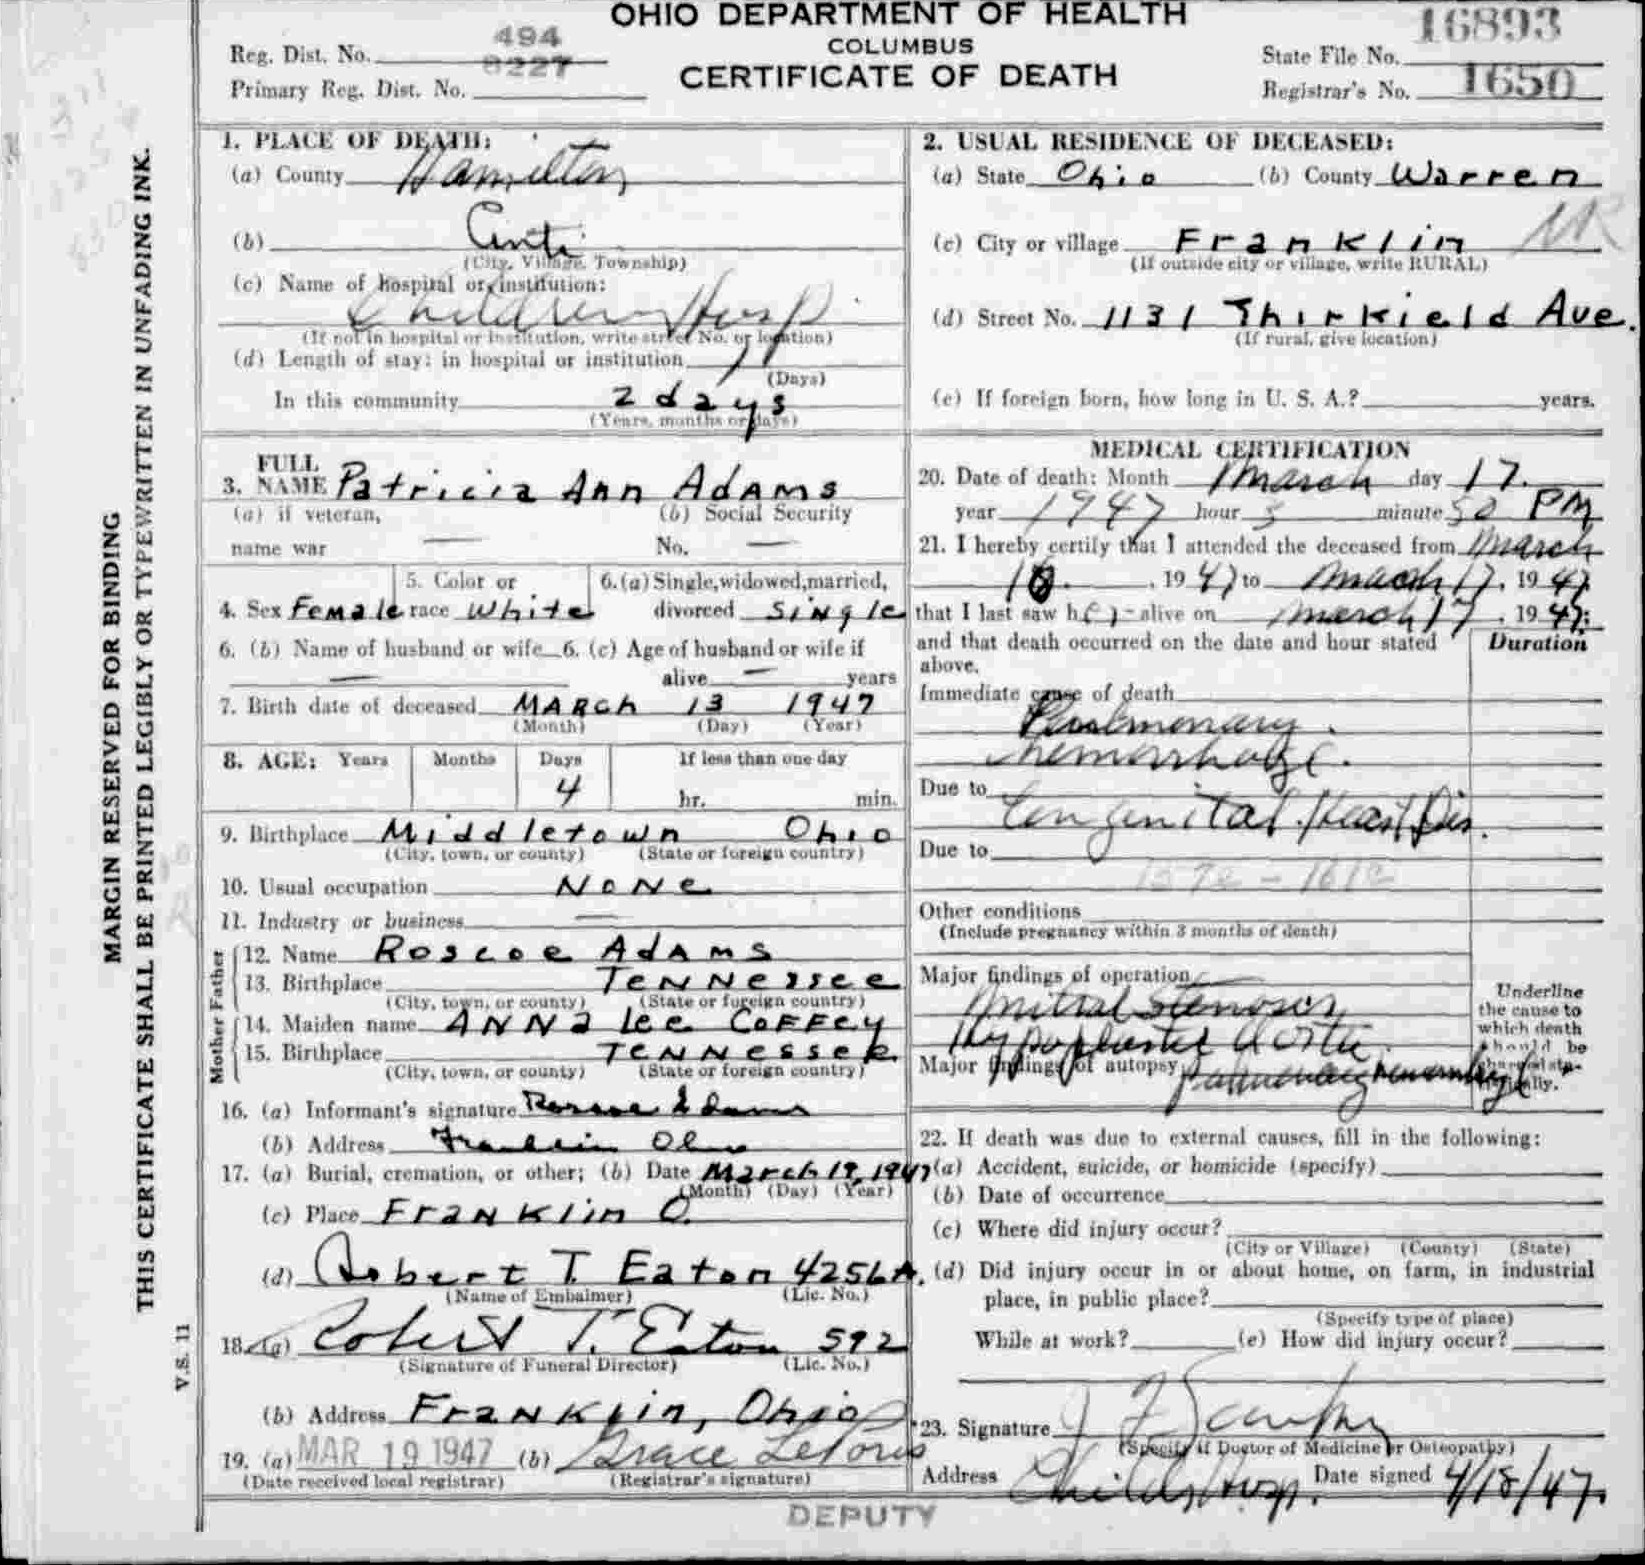 OHIO DEPARTMENT OF HEALTH
COLUMBUS
CERTIFICATE OF DEATH
Reg. Dist. No. 494
8227
Primary Reg. Dist. No.
State File No. 16893
Registrar's No. 1650
MARGIN RESERVED FOR BINDING
THIS CERTIFICATE SHALL BE PRINTED LEGIBLY OR TYPEWRITTEN IN UNFADING INK.
V.S. 11
1. PLACE OF DEATH:
(a) County Hamilton
(b) Cinti
(City, Village, Township)
(c) Name of hospital or institution:
Childrens Hosp
(If not in hospital or institution, write street No. or location)
(d) Length of stay: in hospital or institution
(Days)
In this community 2 days
(Years, months or days)
2. USUAL RESIDENCE OF DECEASED:
(a) State Ohio (b) County Warren
(c) City or village Franklin
(If outside city or village, write RURAL)
(d) Street No. 1131 Thirkield Ave.
(If rural, give location)
(e) If foreign born, how long in U. S. A.? years.
3. FULL NAME Patricia Ann Adams
(a) if veteran, name war —
(b) Social Security No. —
4. Sex Female 5. Color or race White 6. (a) Single, widowed, married, divorced Single
6. (b) Name of husband or wife — 6. (c) Age of husband or wife if alive — years
7. Birth date of deceased March 13 1947
(Month) (Day) (Year)
8. AGE: Years Months Days If less than one day
4 hr. min.
9. Birthplace Middletown Ohio
(City, town, or county) (State or foreign country)
10. Usual occupation None
11. Industry or business —
Father
12. Name Roscoe Adams
13. Birthplace Tennessee
(City, town, or county) (State or foreign country)
Mother
14. Maiden name Anna Lee Coffey
15. Birthplace Tennessee
(City, town, or county) (State or foreign country)
16. (a) Informant's signature Roscoe Adams
(b) Address Franklin Ohio
17. (a) Burial, cremation, or other; (b) Date March 19, 1947
(Month) (Day) (Year)
(c) Place Franklin O.
(d) Robert T. Eaton 4256A.
(Name of Embalmer) (Lic. No.)
18. (a) Robert T. Eaton 592
(Signature of Funeral Director) (Lic. No.)
(b) Address Franklin, Ohio
19. (a) MAR 19 1947 (b) Grace
(Date received local registrar) (Registrar's signature)
DEPUTY
MEDICAL CERTIFICATION
20. Date of death: Month March day 17.
year 1947 hour 5 minute 50 PM
21. I hereby certify that I attended the deceased from March
1947 to March 17, 1947
that I last saw h alive on March 17, 1947;
and that death occurred on the date and hour stated above.
Duration
Immediate cause of death
Pulmonary
hemorrhage.
Due to
Congenital Heart Dis.
Due to
Other conditions
(Include pregnancy within 3 months of death)
Major findings of operation —
Mitral stenosis
Hypoplastic Aorta
Major findings of autopsy Pulmonary hemorrhage
Underline the cause to which death should be charged statistically.
22. If death was due to external causes, fill in the following:
(a) Accident, suicide, or homicide (specify)
(b) Date of occurrence
(c) Where did injury occur?
(City or Village) (County) (State)
(d) Did injury occur in or about home, on farm, in industrial
place, in public place?
(Specify type of place)
While at work? (e) How did injury occur?
23. Signature
(Specify if Doctor of Medicine or Osteopathy)
Address Childs Hosp. Date signed 4/18/47.